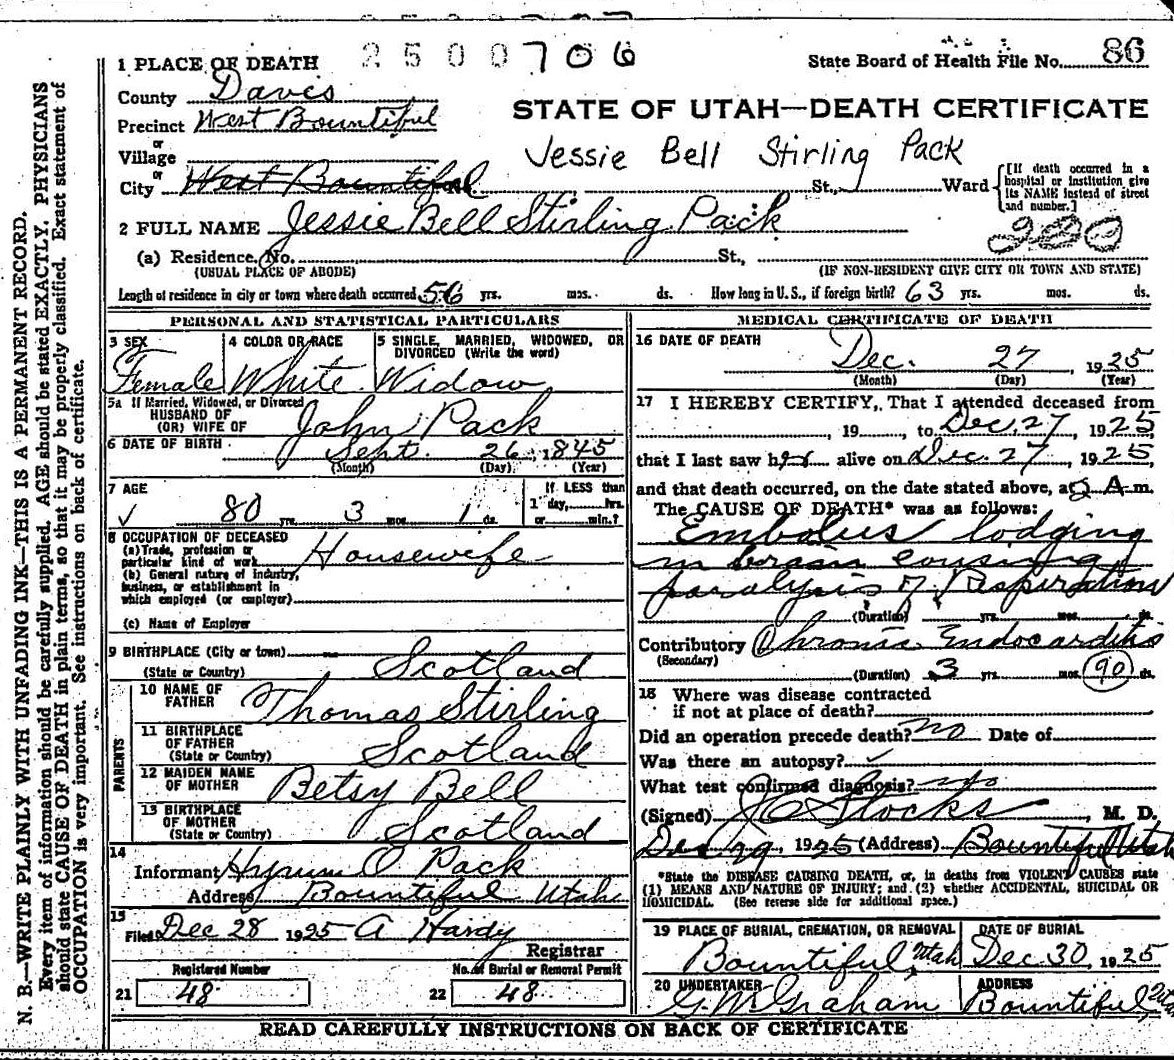 1 PLACE OF DEATH 2500706 State Board of Health File No. 86
County Davis
Precinct West Bountiful
or
Village
or
City West Bountiful
STATE OF UTAH—DEATH CERTIFICATE
Jessie Bell Stirling Pack
St., Ward
[If death occurred in a hospital or institution give its NAME instead of street and number.]
2 FULL NAME Jessie Bell Stirling Pack
200
(a) Residence, No. St.,
(USUAL PLACE OF ABODE) (IF NON-RESIDENT GIVE CITY OR TOWN AND STATE)
Length of residence in city or town where death occurred 56 yrs. mos. ds. How long in U.S., if foreign birth? 63 yrs. mos. ds.
PERSONAL AND STATISTICAL PARTICULARS
3 SEX 4 COLOR OR RACE 5 SINGLE, MARRIED, WIDOWED, OR DIVORCED (Write the word)
Female White Widow
5a If Married, Widowed, or Divorced
HUSBAND OF
(OR) WIFE OF John Pack
6 DATE OF BIRTH Sept. 26, 1845
(Month) (Day) (Year)
7 AGE If LESS than
1 day, hrs.
80 yrs. 3 mos. 1 ds. or min.?
8 OCCUPATION OF DECEASED
(a) Trade, profession or
particular kind of work Housewife
(b) General nature of industry,
business, or establishment in
which employed (or employer)
(c) Name of Employer
9 BIRTHPLACE (City or town)
(State or Country) Scotland
PARENTS
10 NAME OF
FATHER Thomas Stirling
11 BIRTHPLACE
OF FATHER
(State or Country) Scotland
12 MAIDEN NAME
OF MOTHER Betsy Bell
13 BIRTHPLACE
OF MOTHER
(State or Country) Scotland
14
Informant Hyrum O Pack
Address Bountiful Utah
15
Filed Dec 28 1925 A Hardy
Registrar
Registered Number No. of Burial or Removal Permit
21 48 22 48
MEDICAL CERTIFICATE OF DEATH
16 DATE OF DEATH
Dec. 27, 1925
(Month) (Day) (Year)
17 I HEREBY CERTIFY, That I attended deceased from
, 19 , to Dec. 27, 1925
that I last saw her alive on Dec. 27, 1925,
and that death occurred, on the date stated above, at A m.
The CAUSE OF DEATH* was as follows:
Embolus lodging
in brain causing
paralysis of Respiration
(Duration) yrs. mos. ds.
Contributory Chronic Endocarditis
(Secondary)
(Duration) 3 yrs. mos. 90 ds.
18 Where was disease contracted
if not at place of death?
Did an operation precede death? no Date of
Was there an autopsy?
What test confirmed diagnosis? no
(Signed) J C Stocks, M. D.
Dec 29, 1925 (Address) Bountiful Utah
*State the DISEASE CAUSING DEATH, or, in deaths from VIOLENT CAUSES state
(1) MEANS AND NATURE OF INJURY; and (2) whether ACCIDENTAL, SUICIDAL OR
HOMICIDAL. (See reverse side for additional space.)
19 PLACE OF BURIAL, CREMATION, OR REMOVAL DATE OF BURIAL
Bountiful, Utah Dec 30, 1925
20 UNDERTAKER ADDRESS
G. W Graham Bountiful
READ CAREFULLY INSTRUCTIONS ON BACK OF CERTIFICATE
N. B.—WRITE PLAINLY WITH UNFADING INK—THIS IS A PERMANENT RECORD.
Every item of information should be carefully supplied. AGE should be stated EXACTLY. PHYSICIANS
should state CAUSE OF DEATH in plain terms, so that it may be properly classified. Exact statement of
OCCUPATION is very important. See instructions on back of certificate.